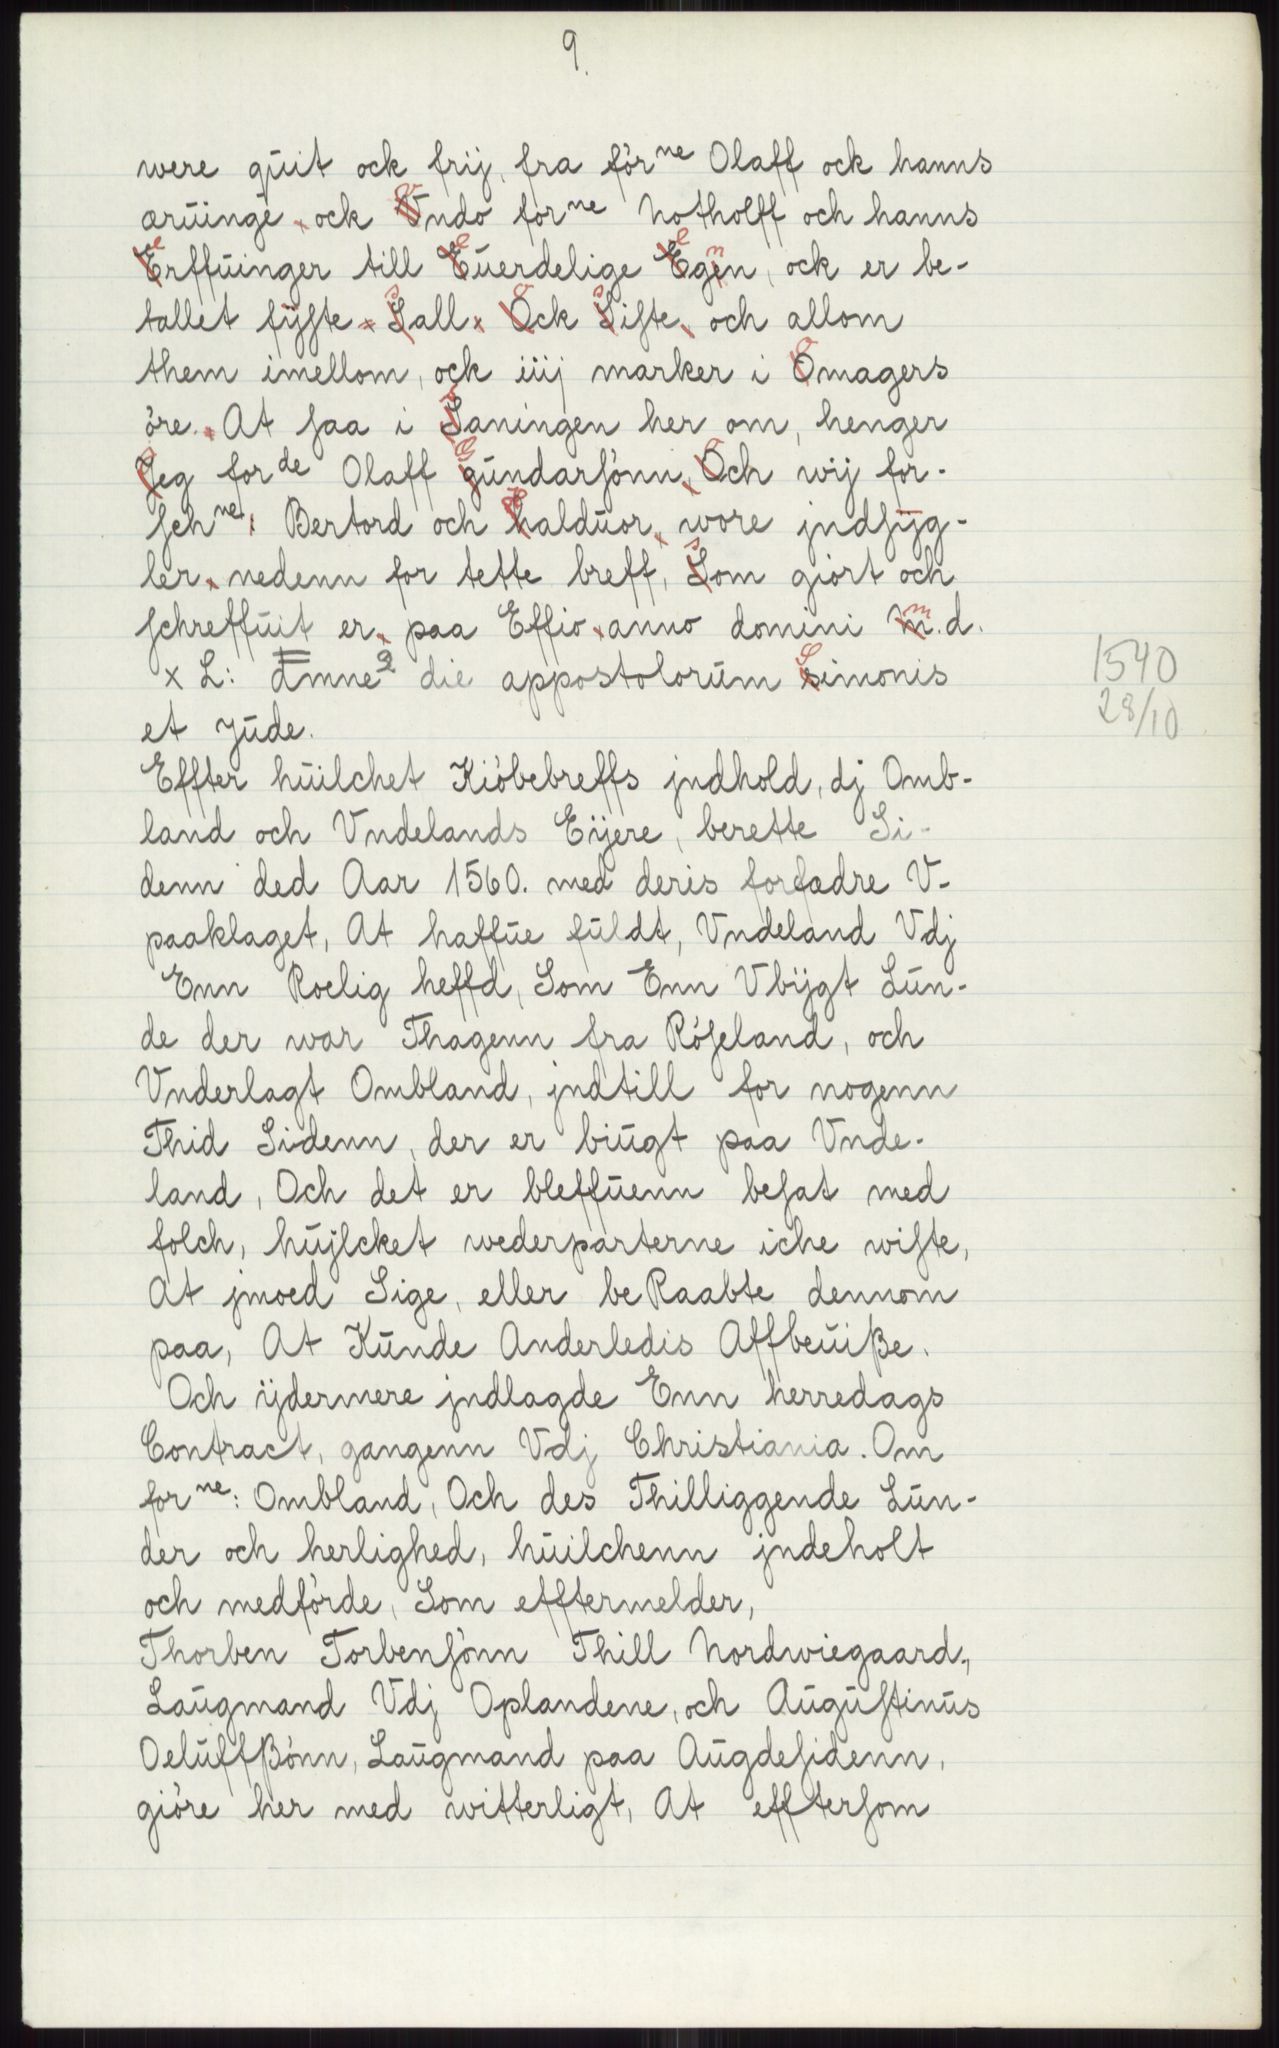 9.
were quit ock frij, fraför ne Olaff ock hanns
æruinge ock Vndo for ne Notholff och hanns
Erffuinger till Euerdelige Egen, ock er be-
tallet fÿste Sall Ock Siste och allom
them imellom, ock iiij marker i Omagers
öre. At saa i Saningen her om, henger
Jeg for de Olaff gundarsönn, Och wij for-
schne: Bertord och halduor, wore jndsÿg-
ler, nedenn for tette breff, Som giort och
schreffuit er, paa Effio anno domini m.d.
x L: die appostolorum simonis
et jude.
1540
28/10
Effter huilchet Kiöbebreffs jndhold, dj Omb-
land och Vndelands Eÿere, berette Si-
denn ded Aar 1560. med deris forfædre V-
paaklaget, At haffue fuldt, Vndeland Vdj
Enn Roelig heffd, Som Enn Vbÿgt Lun-
de der war Thagenn fra Röseland, och
Vnderlagt Ombland, jndtill for nogenn
Thid Sidenn, der er biugt paa Vnde-
land, Och det er bleffuenn besat med
folch, hujlcket wederparterne iche wiste,
At jmoed Sige, eller be Raabte dennom
paa, At Kunde Anderledis Affbeuiße.
Och ÿdermere jndlagde Enn herredags
Contract, gangenn Vdj Christiania. Om
for ne: Ombland, Och des Thilliggende Lun-
der och herlighed, huilchenn jndeholt
och medförde, Som efftermelder,
Thorben Torbensönn Thill Nordwiegaard,
Laugmand Vdj Oplandene, och Augustinus
Oeluffßönn, Laugmand paa Augdesidenn,
giöre her med witterligt, At efftersom